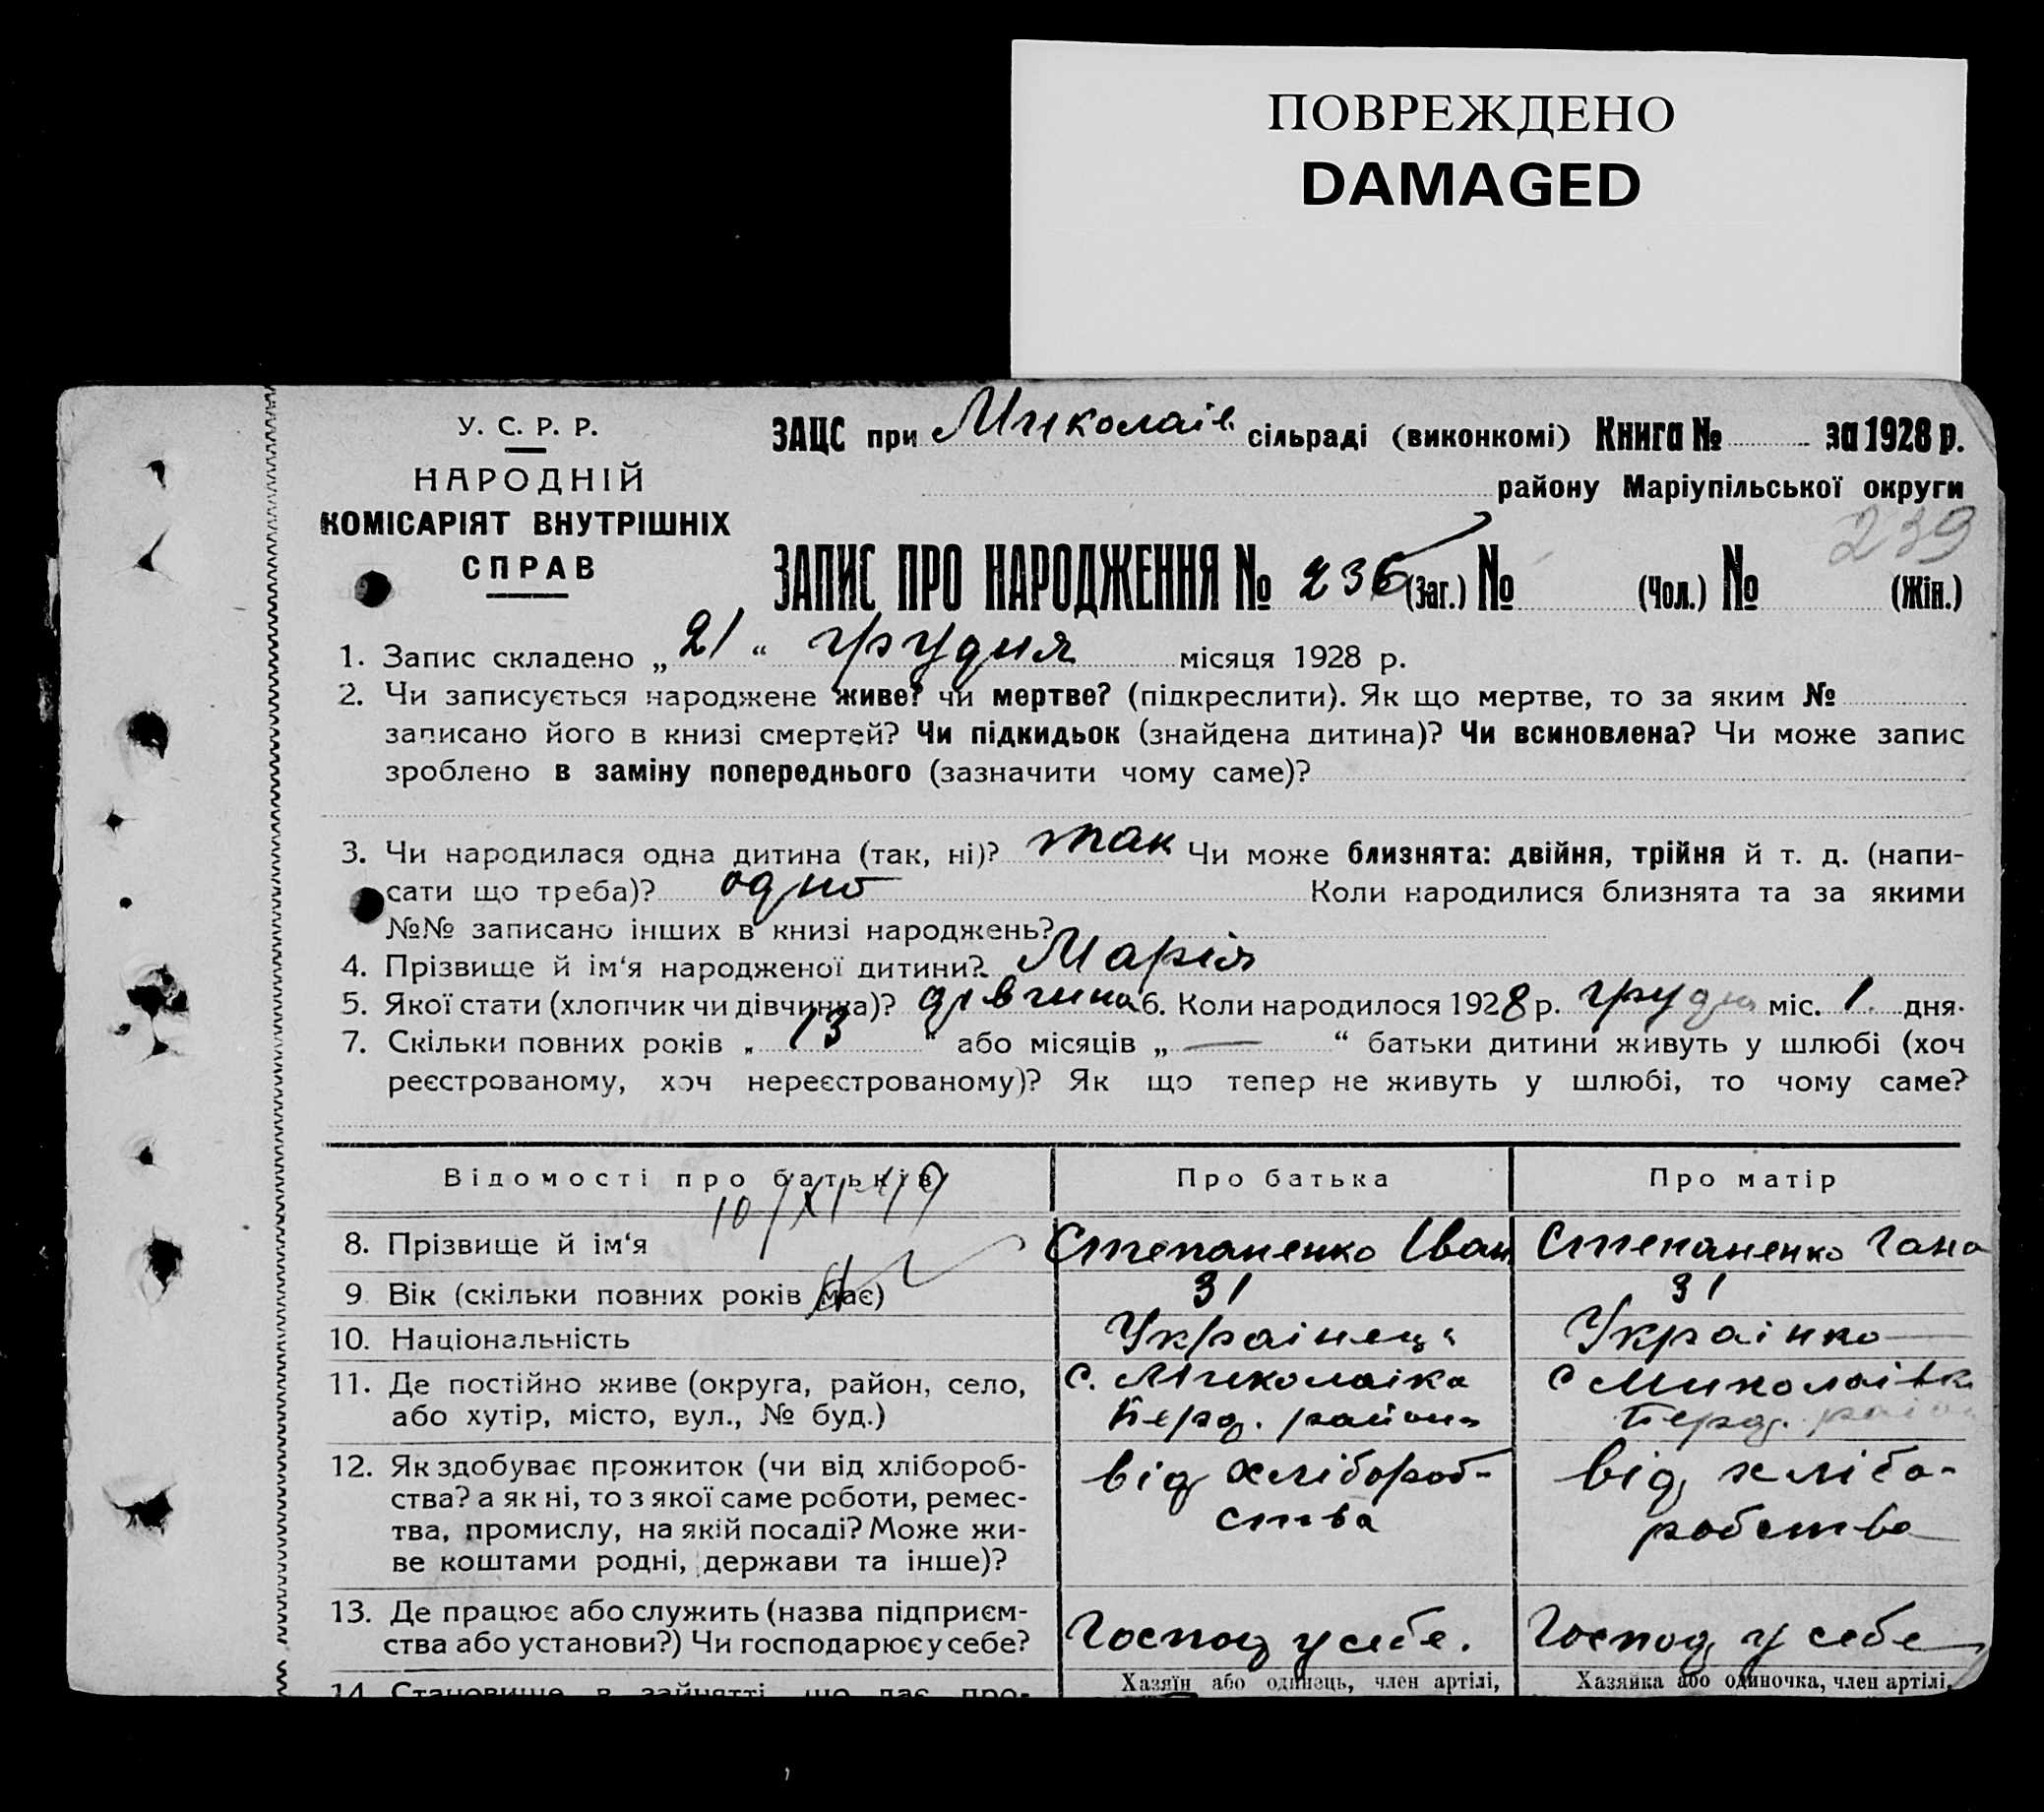 ПОВРЕЖДЕНО
DAMAGED
У. С. Р. Р.
НАРОДНІЙ
КОМІСАРІЯТ ВНУТРІШНІХ
СПРАВ
ЗАЦС при Миколаїв. сільраді (виконкомі) Книга № за 1928 р.
району Маріупільської округи
239
ЗАПИС ПРО НАРОДЖЕННЯ № 236 (Заг.) № (Чол.) № (Жін.)
1. Запис складено „ 21 “ грудня місяця 1928 р.
2. Чи записується народжене живе? чи мертве? (підкреслити). Як що мертве, то за яким №
записано його в книзі смертей? Чи підкидьок (знайдена дитина)? Чи всиновлена? Чи може запис
зроблено в заміну попереднього (зазначити чому саме)?
3. Чи народилася одна дитина (так, ні)? так Чи може близнята: двійня, трійня й т. д. (напи-
сати що треба)? одно Коли народилися близнята та за якими
№№ записано інших в книзі народжень?
4. Прізвище й ім‘я народженої дитини? Марія
5. Якої стати (хлопчик чи дівчинка)? дівчина 6. Коли народилося 1928 р. грудня міс. 1 дня.
7. Скільки повних років „ 13 “ або місяців „ — “ батьки дитини живуть у шлюбі (хоч
реєстрованому, хоч нереєстрованому)? Як що тепер не живуть у шлюбі, то чому саме?
Відомості про батьків Про батька Про матір
10/XI-49
8. Прізвище й ім‘я Степаненко Іван Степаненко Гана
9. Вік (скільки повних років має) 31 31
10. Національність Українець Українка
11. Де постійно живе (округа, район, село, с. Миколаїка с Миколаївка
або хутір, місто, вул., № буд.) Берд. района Берд. район
12. Як здобуває прожиток (чи від хлібороб- від хлібороб- від хлібо-
ства? а як ні, то з якої саме роботи, ремес- ства робства
тва, промислу, на якій посаді? Може жи-
ве коштами родні, держави та інше)?
13. Де працює або служить (назва підприєм- Господ у себе. Господ у себе
ства або установи?) Чи господарює у себе?
Хазяїн або одинець, член артілі, Хазяйка або одиночка, член артілі,
14. Становище в зайнятті, що дає про-